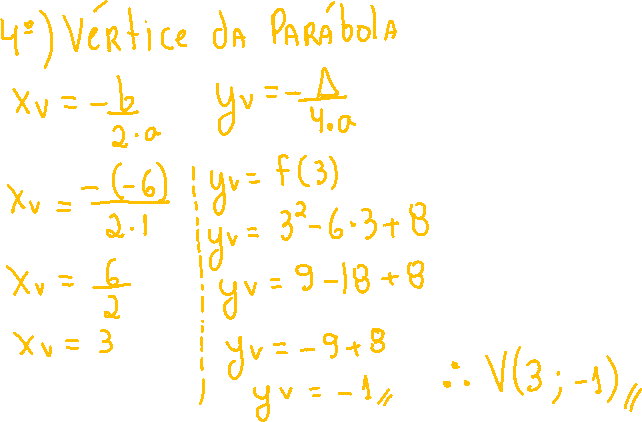 4º) Vértice da Parábola
xv = -b/2·a
yv = -Δ/4·a
xv = -(-6)/2·1
xv = 6/2
xv = 3
yv = f(3)
yv = 3²-6·3+8
yv = 9-18+8
yv = -9+8
yv = -1//
∴ V(3;-1)//